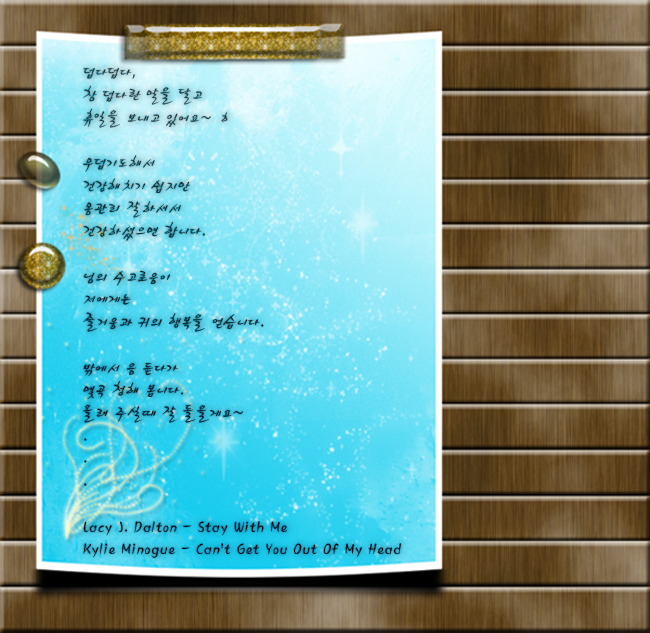 덥다덥다,
참 덥다란 말을 달고
휴일을 보내고 있어요~ ㅎ
무덥기도해서
건강해치기 쉽지만
몸관리 잘하셔서
건강하셨으면 합니다.
님의 수고로움이
저에게는
즐거움과 귀의 행복을 얻습니다.
밖에서 음 듣다가
몇곡 청해 봅니다.
올려 주실때 잘 들을게요~
.
.
.
Lacy J. Dalton - Stay With Me
Kylie Minogue - Can't Get You Out Of My Head